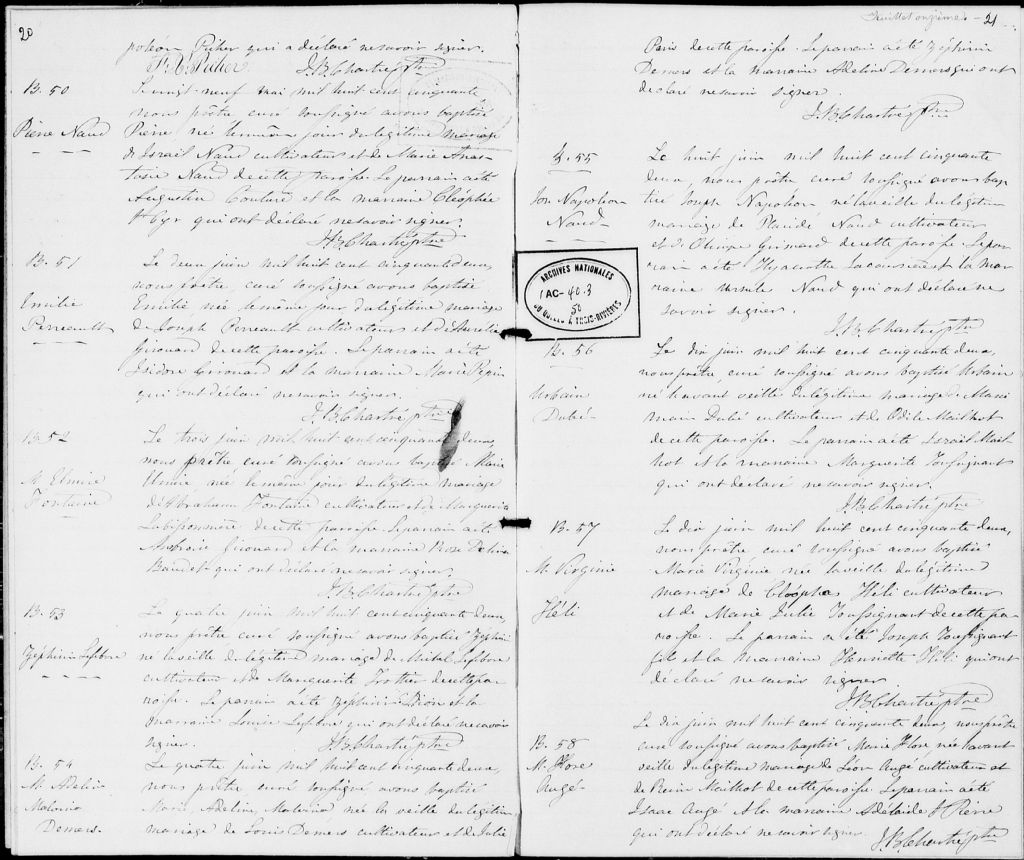 20
poléon Richer qui a déclaré ne savoir signer.
J. B. Chartré ptre
B. 50
Pierre Naud
Le vingt-neuf mai mil huit cent cinquante
nous prêtre curé soussigné avons baptisé
Pierre né le même jour du légitime mariage
de Israil Naud cultivateur et de Marie Anas-
tasie Naud de cette paroisse. Le parrain a été
Augustin Couture et la marraine Cléophée
St Cyr qui ont déclaré ne savoir signer.
J. B. Chartré ptre
B. 51
Emilie
Perreault
Le deux juin mil huit cent cinquante deux,
nous prêtre, curé soussigné avons baptisé
Emilie, née le même jour du légitime mariage
de Joseph Perreault cultivateur et d'Aurelie
Girouard de cette paroisse. Le parrain a été
Isidore Girouard et la marraine Marie Pepin
qui ont déclaré ne savoir signer.
J. B. Chartré ptre
B. 52
M. Elmire
Fontaine
Le trois juin mil huit cent cinquante deux,
nous prêtre curé soussigné avons baptisé Marie
Elmire, née le même jour du légitime mariage
d'Abraham Fontaine cultivateur et de Marguerite
de cette paroisse. Le parrain a été
Ambroise Girouard et la marraine Rose Delina
Baudet qui ont déclaré ne savoir signer.
J. B. Chartré ptre
B. 53
Zéphirin Lefebvre
Le quatre juin mil huit cent cinquante deux,
nous prêtre curé soussigné avons baptisé Zéphirin
né la veille du légitime mariage de Lefebvre
cultivateur et de Marguerite Trottier de cette pa-
roisse. Le parrain a été Zéphirin Dion et la
marraine Louise Lefebvre qui ont déclaré ne savoir
signer.
J. B. Chartré ptre
B. 54
M. Adeline
Malvina
Demers.
Le quatre juin mil huit cent cinquante deux,
nous prêtre curé soussigné, avons baptisé
Marie Adeline Malvina née la veille du légitime
mariage de Louis Demers cultivateur et de Julie
Feuillet onzième. - 21
Paris de cette paroisse. Le parrain a été Zéphirin
Demers et la marraine Adeline Demers qui ont
déclaré ne savoir signer.
J. B. Chartré ptre
B. 55
Jos. Napoléon
Naud
Le huit juin mil huit cent cinquante
deux, nous prêtre curé soussigné avons bap-
tisé Joseph Napoléon né la veille du légitime
mariage de Placide Naud cultivateur
et d'Olimpe Grimard de cette paroisse. Le par-
rain a été Hyacinthe Lacoursière et la mar-
raine Ursule Naud qui ont déclaré ne
savoir signer.
J. B. Chartré ptre
ARCHIVES NATIONALES
1AC- 40.3
50
DU QUÉBEC À TROIS-RIVIÈRES
B. 56
Urbain
Dubé
Le dix juin mil huit cent cinquante deux,
nous prêtre, curé soussigné avons baptisé Urbain
né l'avant veille du légitime mariage de Maxi
main Dubé cultivateur et de Odile Mailhot
de cette paroisse. Le parrain a été Israil Mail
hot et la marraine Marguerite Toussignant
qui ont déclaré ne savoir signer.
J. B. Chartré ptre
B. 57
M. Virginie
Héli
Le dix juin mil huit cent cinquante deux,
nous prêtre curé soussigné avons baptisé
Marie Virginie née la veille du légitime
mariage de Cléophas Héli cultivateur
et de Marie Julie Toussignant de cette pa-
roisse. Le parrain a été Joseph Toussignant
fils et la marraine Henriette Héli qui ont
déclaré ne savoir signer
J. B. Chartré ptre
B. 58
M. Flore
Augé
Le dix juin mil huit cent cinquante deux, nous prêtre
curé soussigné avons baptisé Marie Flore née l'avant
veille du légitime mariage de Léon Augé cultivateur et
de Mailhot de cette paroisse. Le parrain a été
Isaac Augé et la marraine Adélaide St Pierre
qui ont déclaré ne savoir signer.
J. B. Chartré ptre